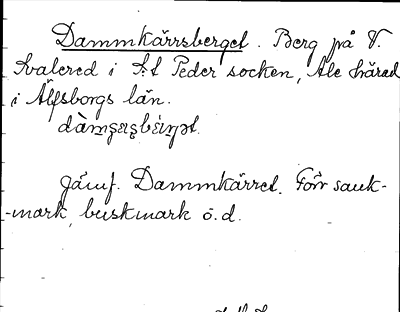 Dammkärrsberget. Berg på V.
Kvalered i S:t Peder socken, Ale härad
i Älfsborgs län.
Jämf. Dammkärret. Förr sank-
-mark, buskmark o.d.